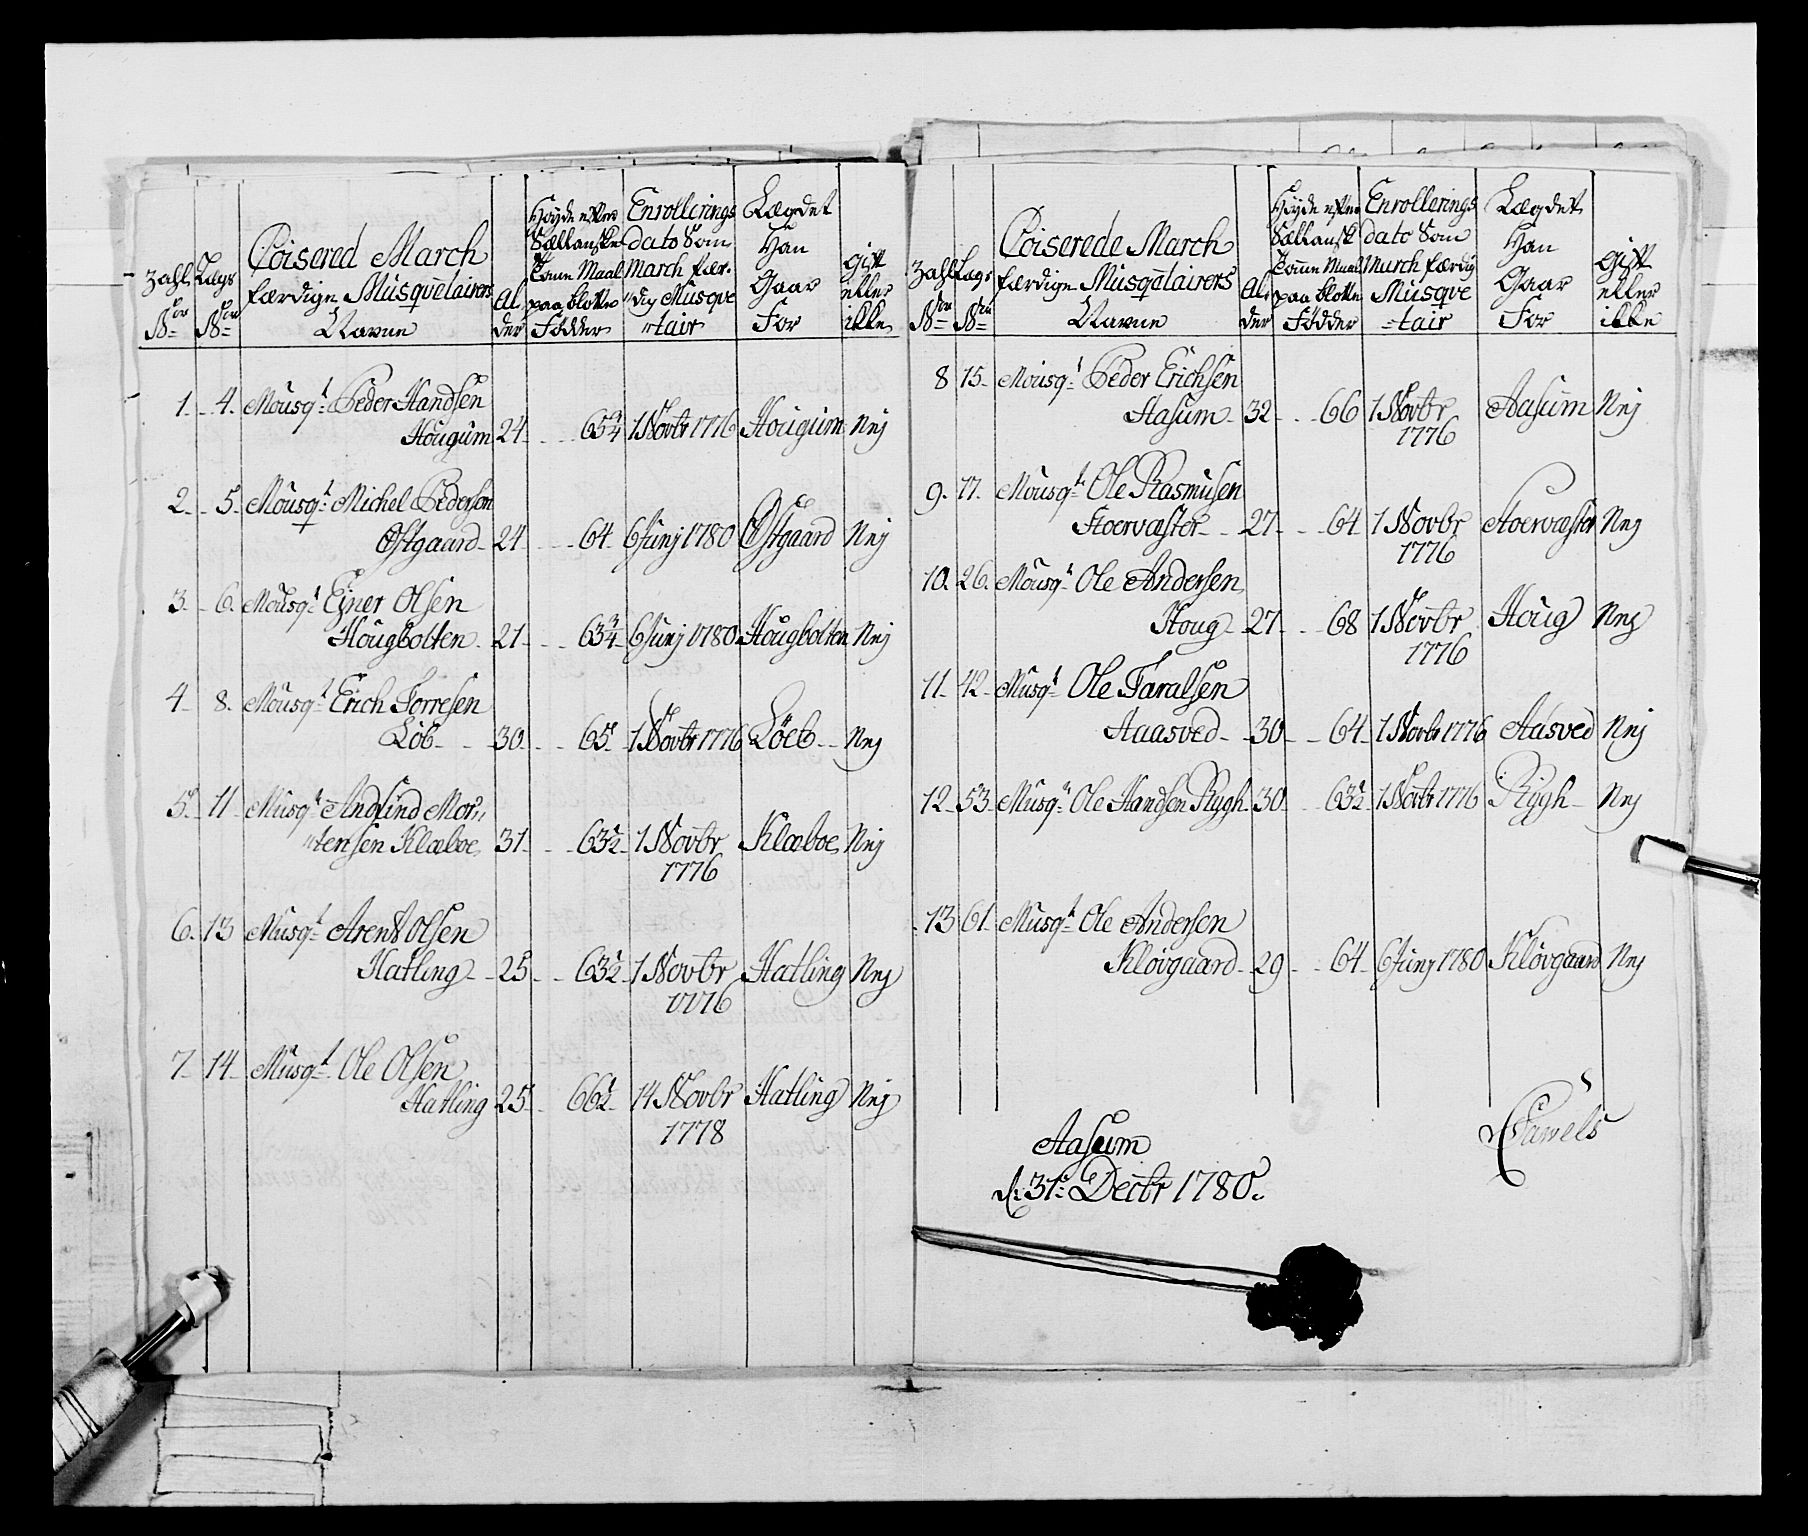 Zahl No
Lægs No
Coisered March færdige Musquetairers Navne
Al. der
Høyde efter Sællanske Tomme Maal paa blotte Fødder
Enrollerings dato Som March fær- dig Musque tair
Lægdet Han Gaar For
Gift eller ikke
1. 4. Mousqt Peder Handsen
Hougum 24 65 3/4 1 Novbr 1776 Hougum Nej
2. 5. Mousqt Michel Pedersen
Østgaard 24 64 6 Junj 1780 Østgaard Nej
3. 6. Mousqt Ejner Olsen
Hougbolten 21 63 3/4 6 Junj 1780 Hougbolten Nej
4 8. Mousqt Erich Torresen
Löb 30 65 1 Novbr 1776 Löeb Nej
5. 11 Musqt Andfind Mor,,
,,tensen Klæboe 31 63 1/2 1 Novbr Klæboe Nej
1776
6. 13 Musqt Arent Olsen
Hatling 25 63 1/2 1 Novbr Hatling Nej
1776
7. 14 Musqt Ole Olsen
Hatling 25 66 1/2 14 Novbr Hatling Nej
1778
Zahl No
Lægs No
Coiserede March færdige Musquetairers Navne
Al. der
Høyde efter Sællansk Tomme Maal paa blotte Fødder
Enrollerings dato Som March færdig Musque =tair
Lægdet Han Gaar For
Gift eller ikke
8 15. Mousqt Peder Erichsen
Aasum 32 66 1 Novbr Aasum Nej
1776
9. 17. Mousqt Ole Rasmusen
Stoervæster 27 64 1 Novbr Stoervæster Nej
1776
10. 26. Mousqt Ole Andersen
Houg 27 68 1 Novbr Houg Nej
1776
11. 42. Musqt Ole Taralsen
Aaasved 30 64 1 Novbr 1776 Aasved Nej
12. 53. Musqt Ole Handsen Rygh 30 63 1/2 1 Novbr 1776 Rygh Nej
13 61. Musqt Ole Andersen
Klövgaard 29 64 6 Junj 1780 Klövgaard Nej
Aasum
d: 31te Decbr 1780.